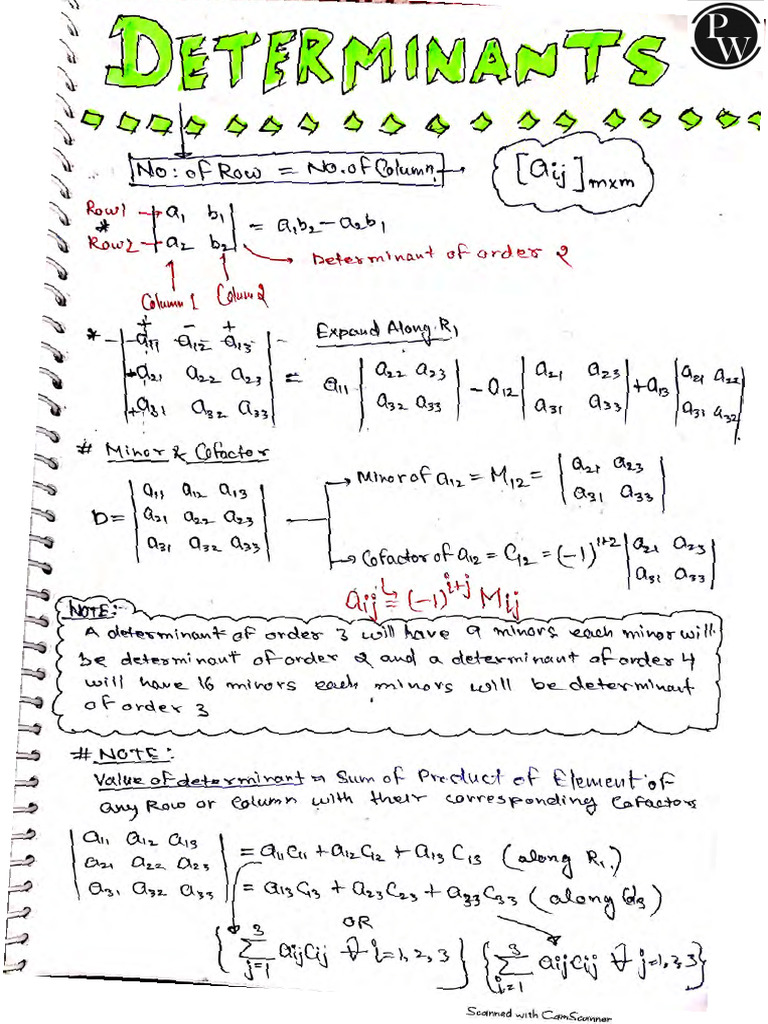 DETERMINANTS
PW
No: of Row = No. of Column → [aij]m×m
Row1 → | a₁ b₁ |
* Row2 → | a₂ b₂ | = a₁b₂ − a₂b₁
→ Determinant of order 2
Column 1 Column 2
+ − +
* | a₁₁ a₁₂ a₁₃ | Expand Along R₁
| a₂₁ a₂₂ a₂₃ | = a₁₁ | a₂₂ a₂₃ | − a₁₂ | a₂₁ a₂₃ | + a₁₃ | a₂₁ a₂₂ |
| a₃₁ a₃₂ a₃₃ | | a₃₂ a₃₃ | | a₃₁ a₃₃ | | a₃₁ a₃₂ |
# Minor & Cofactor
D = | a₁₁ a₁₂ a₁₃ |
| a₂₁ a₂₂ a₂₃ |
| a₃₁ a₃₂ a₃₃ |
→ Minor of a₁₂ = M₁₂ = | a₂₁ a₂₃ |
| a₃₁ a₃₃ |
→ Cofactor of a₁₂ = C₁₂ = (−1)¹⁺² | a₂₁ a₂₃ |
| a₃₁ a₃₃ |
aij = (−1)^i+j Mij
NOTE:-
A determinant of order 3 will have 9 minors each minor will
be determinant of order 2 and a determinant of order 4
will have 16 minors each minors will be determinant
of order 3
# NOTE:
Value of determinant = Sum of Product of Element of
any Row or Column with their corresponding Cofactors
| a₁₁ a₁₂ a₁₃ | = a₁₁C₁₁ + a₁₂C₁₂ + a₁₃C₁₃ (along R₁)
| a₂₁ a₂₂ a₂₃ |
| a₃₁ a₃₂ a₃₃ | = a₁₃C₁₃ + a₂₃C₂₃ + a₃₃C₃₃ (along Col₃)
OR
{ 3 ∑ j=1 aijCij ∀ i=1,2,3 } { 3 ∑ i=1 aijCij ∀ j=1,2,3 }
Scanned with CamScanner